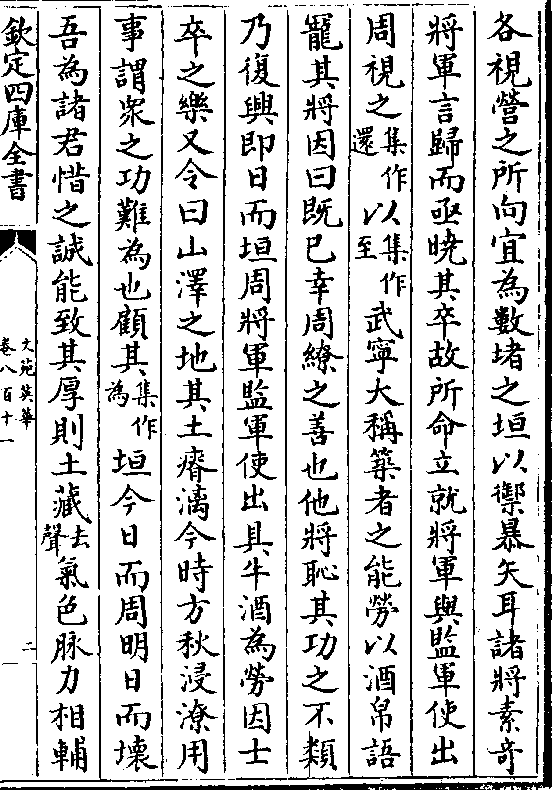 各視營之所向宜為數堵之垣以禦暴矢耳諸將素奇
將軍言歸而亟曉其卒故所命立就將軍與監軍使出
周視之集作還以集作至武寧大稱築者之能勞以酒帛語
寵其將因曰既已幸周繚之善也他將恥其功之不類
乃復興即日而垣周將軍監軍使出具牛酒為勞因士
卒之樂又令曰山澤之地其土瘠漓今時方秋浸潦用
事謂衆之功難為也顧其集作為垣今日而周明日而壞
吾為諸君惜之誠能致其厚則土藏去聲氣色脉力相輔
欽定四庫全書
文苑英華
卷八百十一
二